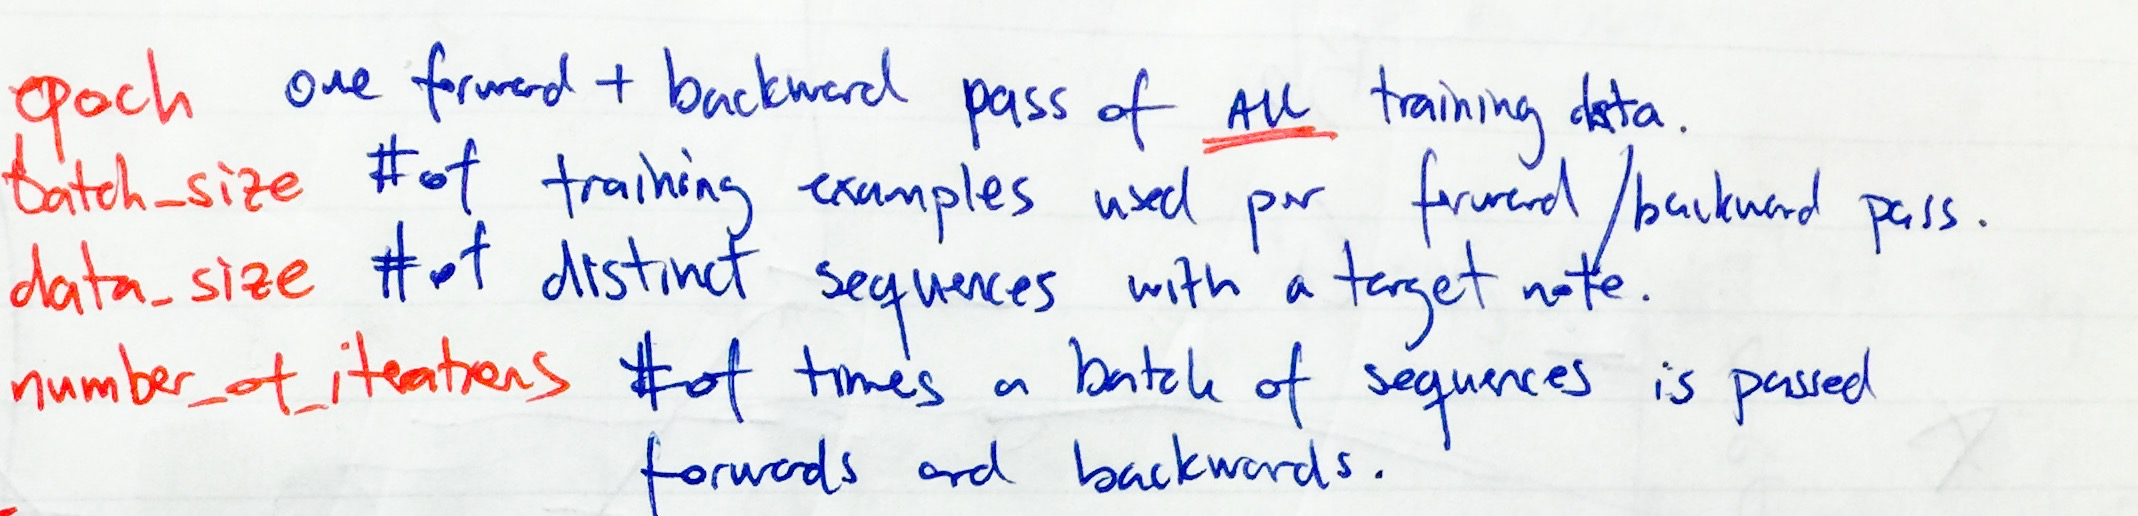 epoch one forward + backward pass of All training data.
batch_size # of training examples used per forward/backward pass.
data_size # of distinct sequences with a target note.
number_of_iterations # of times a batch of sequences is passed
forwards and backwards.